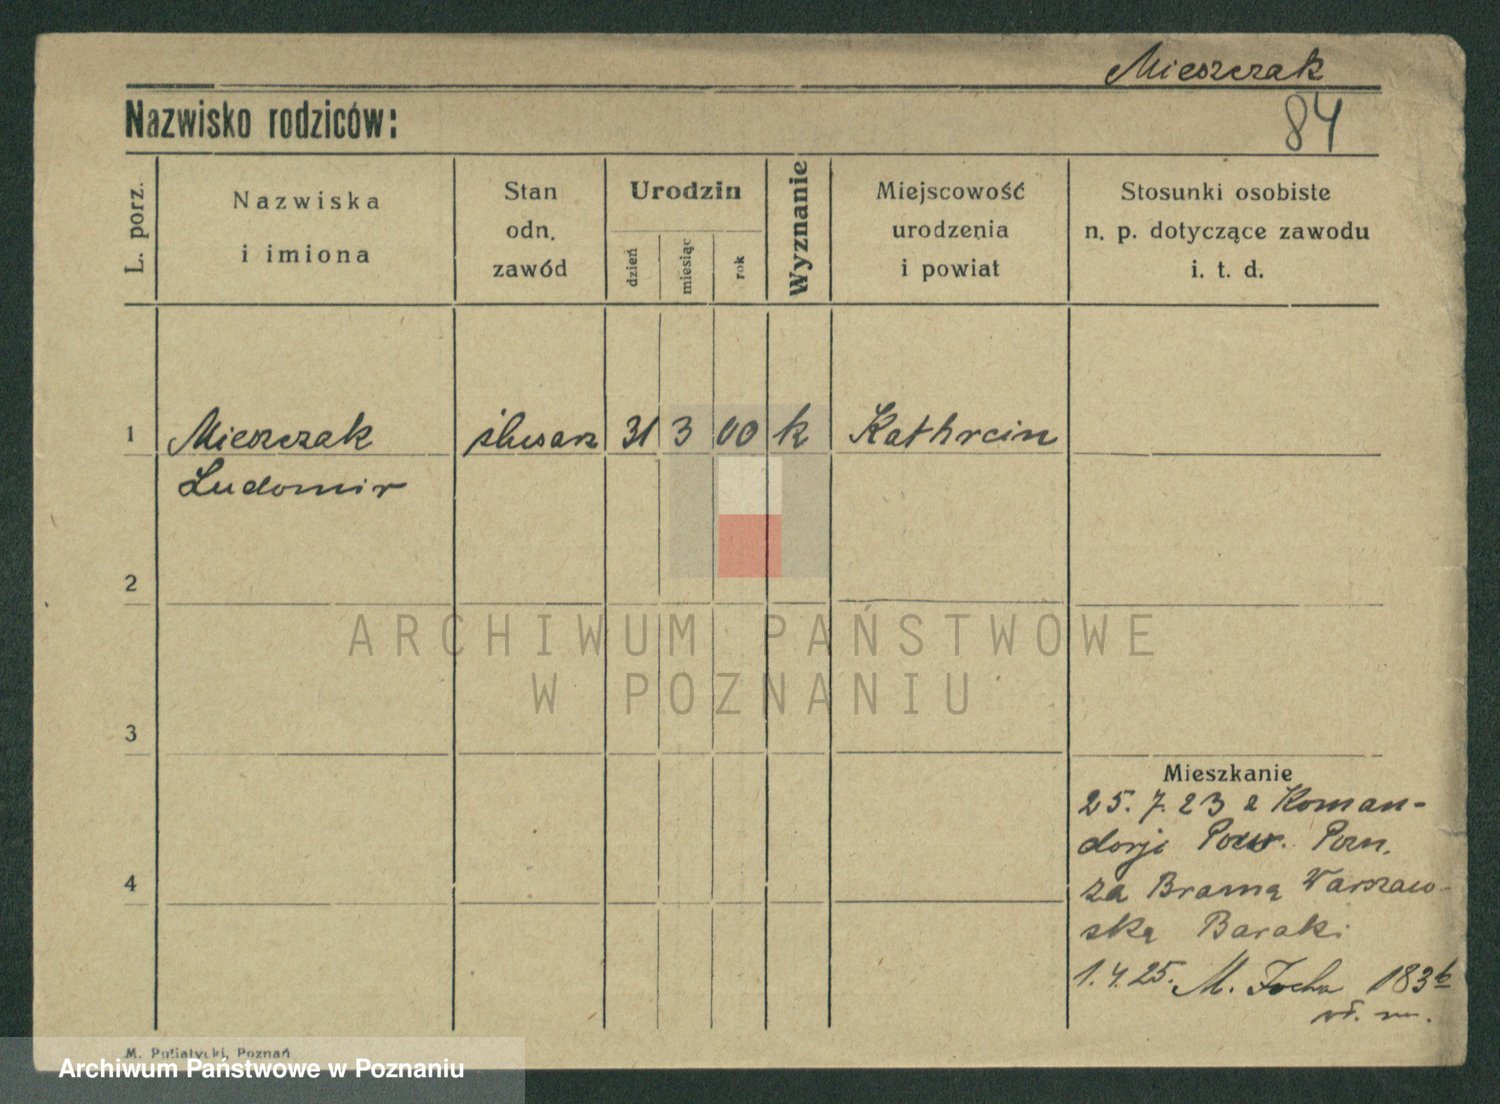 Mieszczak
Nazwisko rodziców:
84
L. porz.
Nazwiska
i imiona
Stan
odn.
zawód
Urodzin
dzień
miesiąc
rok
Wyznanie
Miejscowość
urodzenia
i powiat
Stosunki osobiste
n. p. dotyczące zawodu
i. t. d.
1 Mieszczak ślusarz 31 3 00 k Kathrein
Ludomir
2
ARCHIWUM PAŃSTWOWE
W POZNANIU
3
Mieszkanie
25. 7. 23 z Koman-
dorji Pozn.
za Bramą Warszaw-
4
ską Baraki
1. 4. 25. M. Focha 183
M. Putiatycki, Poznań
Archiwum Państwowe w Poznaniu